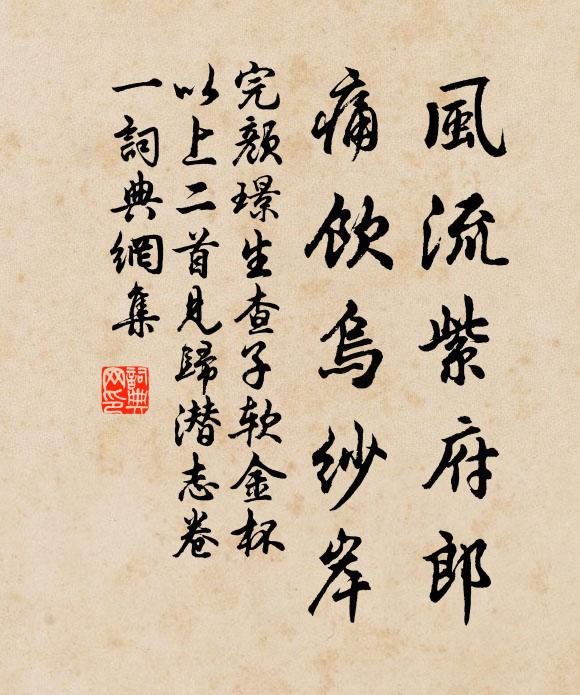 風流紫府郎
痛飲烏紗岸
完顏璟生查子软金杯
以上二首見歸潛志卷
一詞典網集
詞典
网印